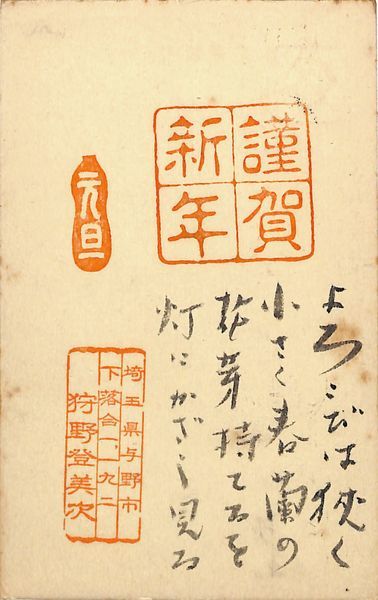 謹賀
新年
元旦
よろこびは狭く
小さく春蘭の
花芽持てるを
灯にかざし見る
埼玉県与野市
下落合一、九二
狩野登美次